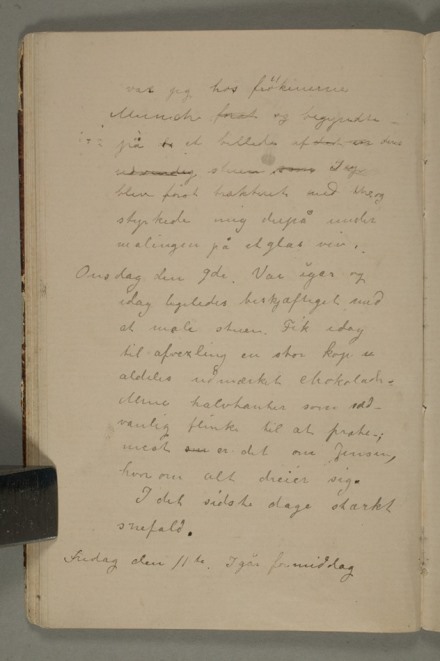 var jeg hos frökenerne
Munch forat og begyndte
på et billede af den
udvendig stuen som Jeg
blev först trakteret med og
styrkede mig också under
malingen på et glas vin.
Onsdag den 9de. Var igår og
idag ligeledes beskjæftiget med
at male stuen. Fik idag
til afvexling en stor kop
aldeles udmærket chokolade.
Mine halvtanter som sæd-
vanlig flinke til at prate;
mest er det om Jensen,
hvorom alt dreier sig.
I det sidste dage stærkt
snefald.
Fredag den 11te. Igår formiddag